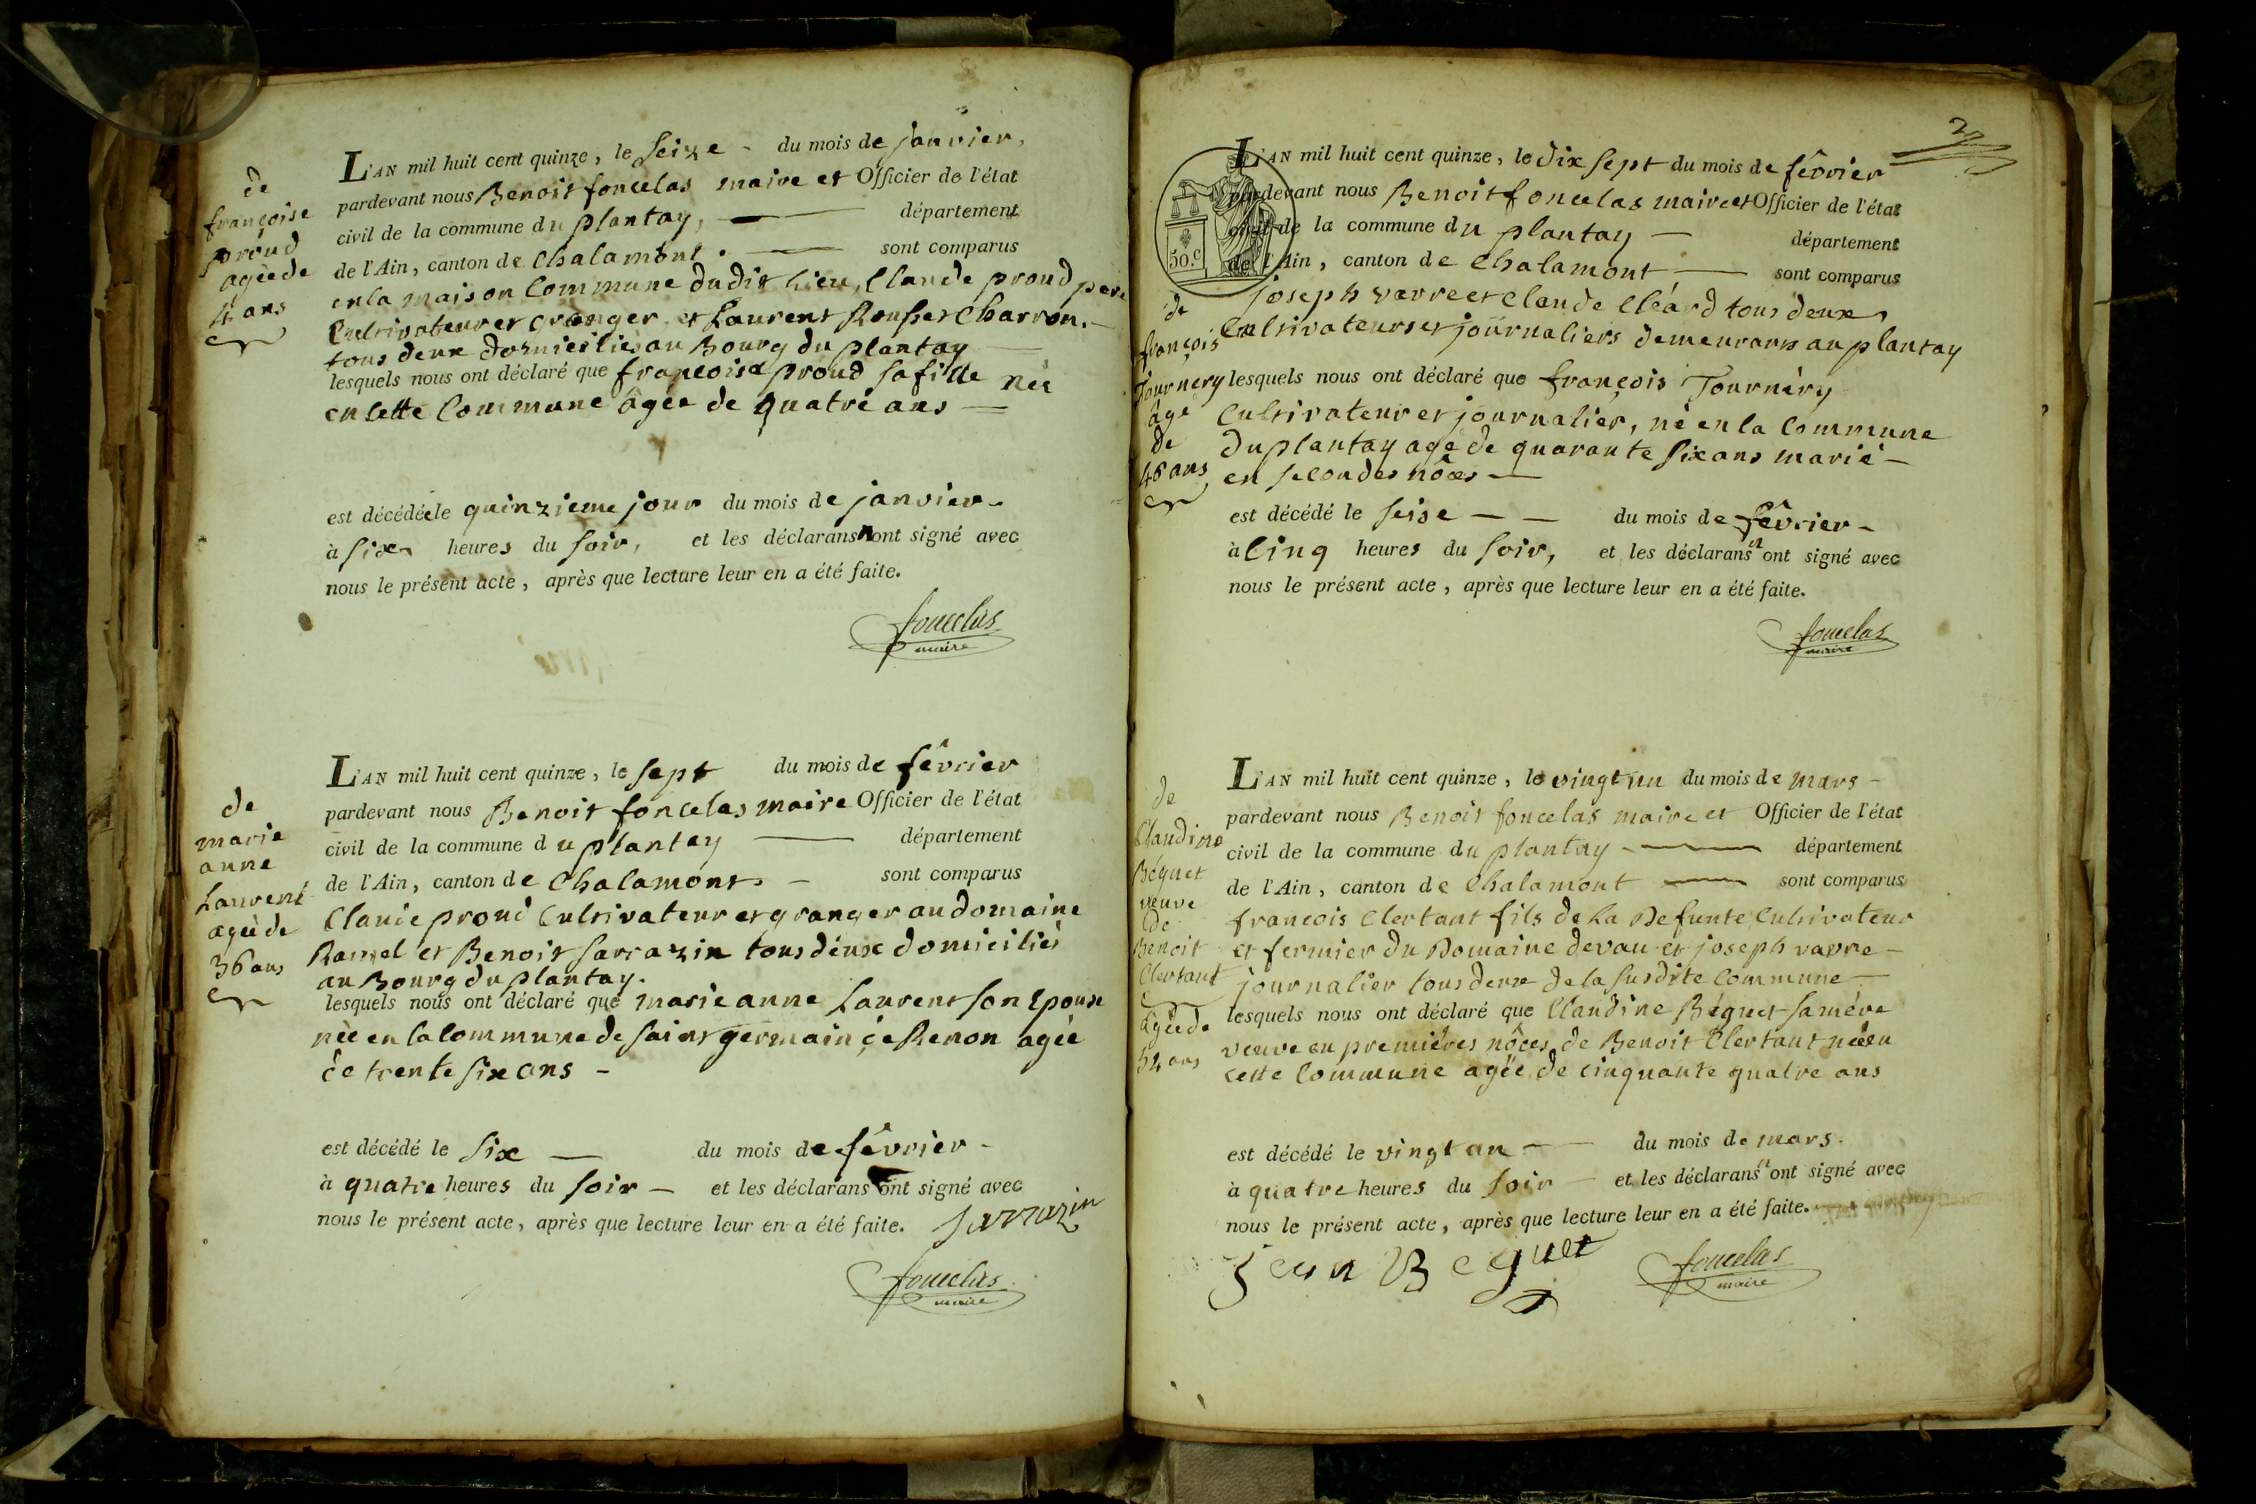 de
françoise
proud
agée de
4 ans
L'AN mil huit cent quinze, le seize - du mois de janvier,
pardevant nous Benoit foncelas maire et Officier de l'état
civil de la commune du plantay, département
de l'Ain, canton de Chalamont. sont comparus
en la maison Commune dudit Lieu, Claude proud pere
Cultivateur et granger et Laurent Rousset Charron.
tous deux domiciliés au Bourg du plantay
lesquels nous ont déclaré que françoise proud sa fille née
en Cette Commune âgée de quatre ans
est décédée le quinzieme jour du mois de janvier
à six heures du soir, et les déclarans n'ont signé avec
nous le présent acte, après que lecture leur en a été faite.
foncelas
maire
de
marie
anne
Laurent
agée de
36 ans
L'AN mil huit cent quinze, le sept du mois de février
pardevant nous Benoit foncelas maire Officier de l'état
civil de la commune du plantay département
de l'Ain, canton de Chalamont. sont comparus
Claude proud Cultivateur et granger au domaine
Ramel et Benoit sarrazin tous deux domiciliés
au Bourg du plantay.
lesquels nous ont déclaré que marie anne Laurent son Epouse
née en la Commune de saint germain de Renon agée
de trente six ans -
est décédé le six du mois de février -
à quatre heures du soir - et les déclarans ont signé avec
nous le présent acte, après que lecture leur en a été faite. sarrazin
foncelas
maire
2
50.c
L'AN mil huit cent quinze, le dix sept du mois de février
pardevant nous Benoit foncelas maire et Officier de l'état
civil de la commune du plantay département
de l'Ain, canton de Chalamont sont comparus
joseph varre et Claude Cléard tous deux
Cultivateurs et journaliers demeurans au plantay
de
françois
Tournery
âgé
de
46 ans
lesquels nous ont déclaré que françois Tournéry
Cultivateur et journalier, né en la Commune
du plantay agé de quarante six ans marié -
en secondes nôces
est décédé le seise du mois de février -
à Cinq heures du soir, et les déclarans n'ont signé avec
nous le présent acte, après que lecture leur en a été faite.
foncelas
maire
de
Claudine
Béguet
veuve
de
Benoit
Clertant
âgée de
54 ans
L'AN mil huit cent quinze, le vingt un du mois de mars -
pardevant nous Benoit foncelas maire et Officier de l'état
civil de la commune du plantay département
de l'Ain, canton de Chalamont sont comparus
françois Clertant fils de La Defunte Cultivateur
et fermier du Domaine devau et joseph varre -
journalier tous deux de la susdite Commune
lesquels nous ont déclaré que Claudine Béguet sa mére
veuve en premiéres nôces de Benoit Clertant née en
cette Commune agée de cinquante quatre ans
est décédé le vingt un du mois de mars.
à quatre heures du soir et les déclarans n'ont signé avec
nous le présent acte, après que lecture leur en a été faite.
jean Beguet
foncelas
maire